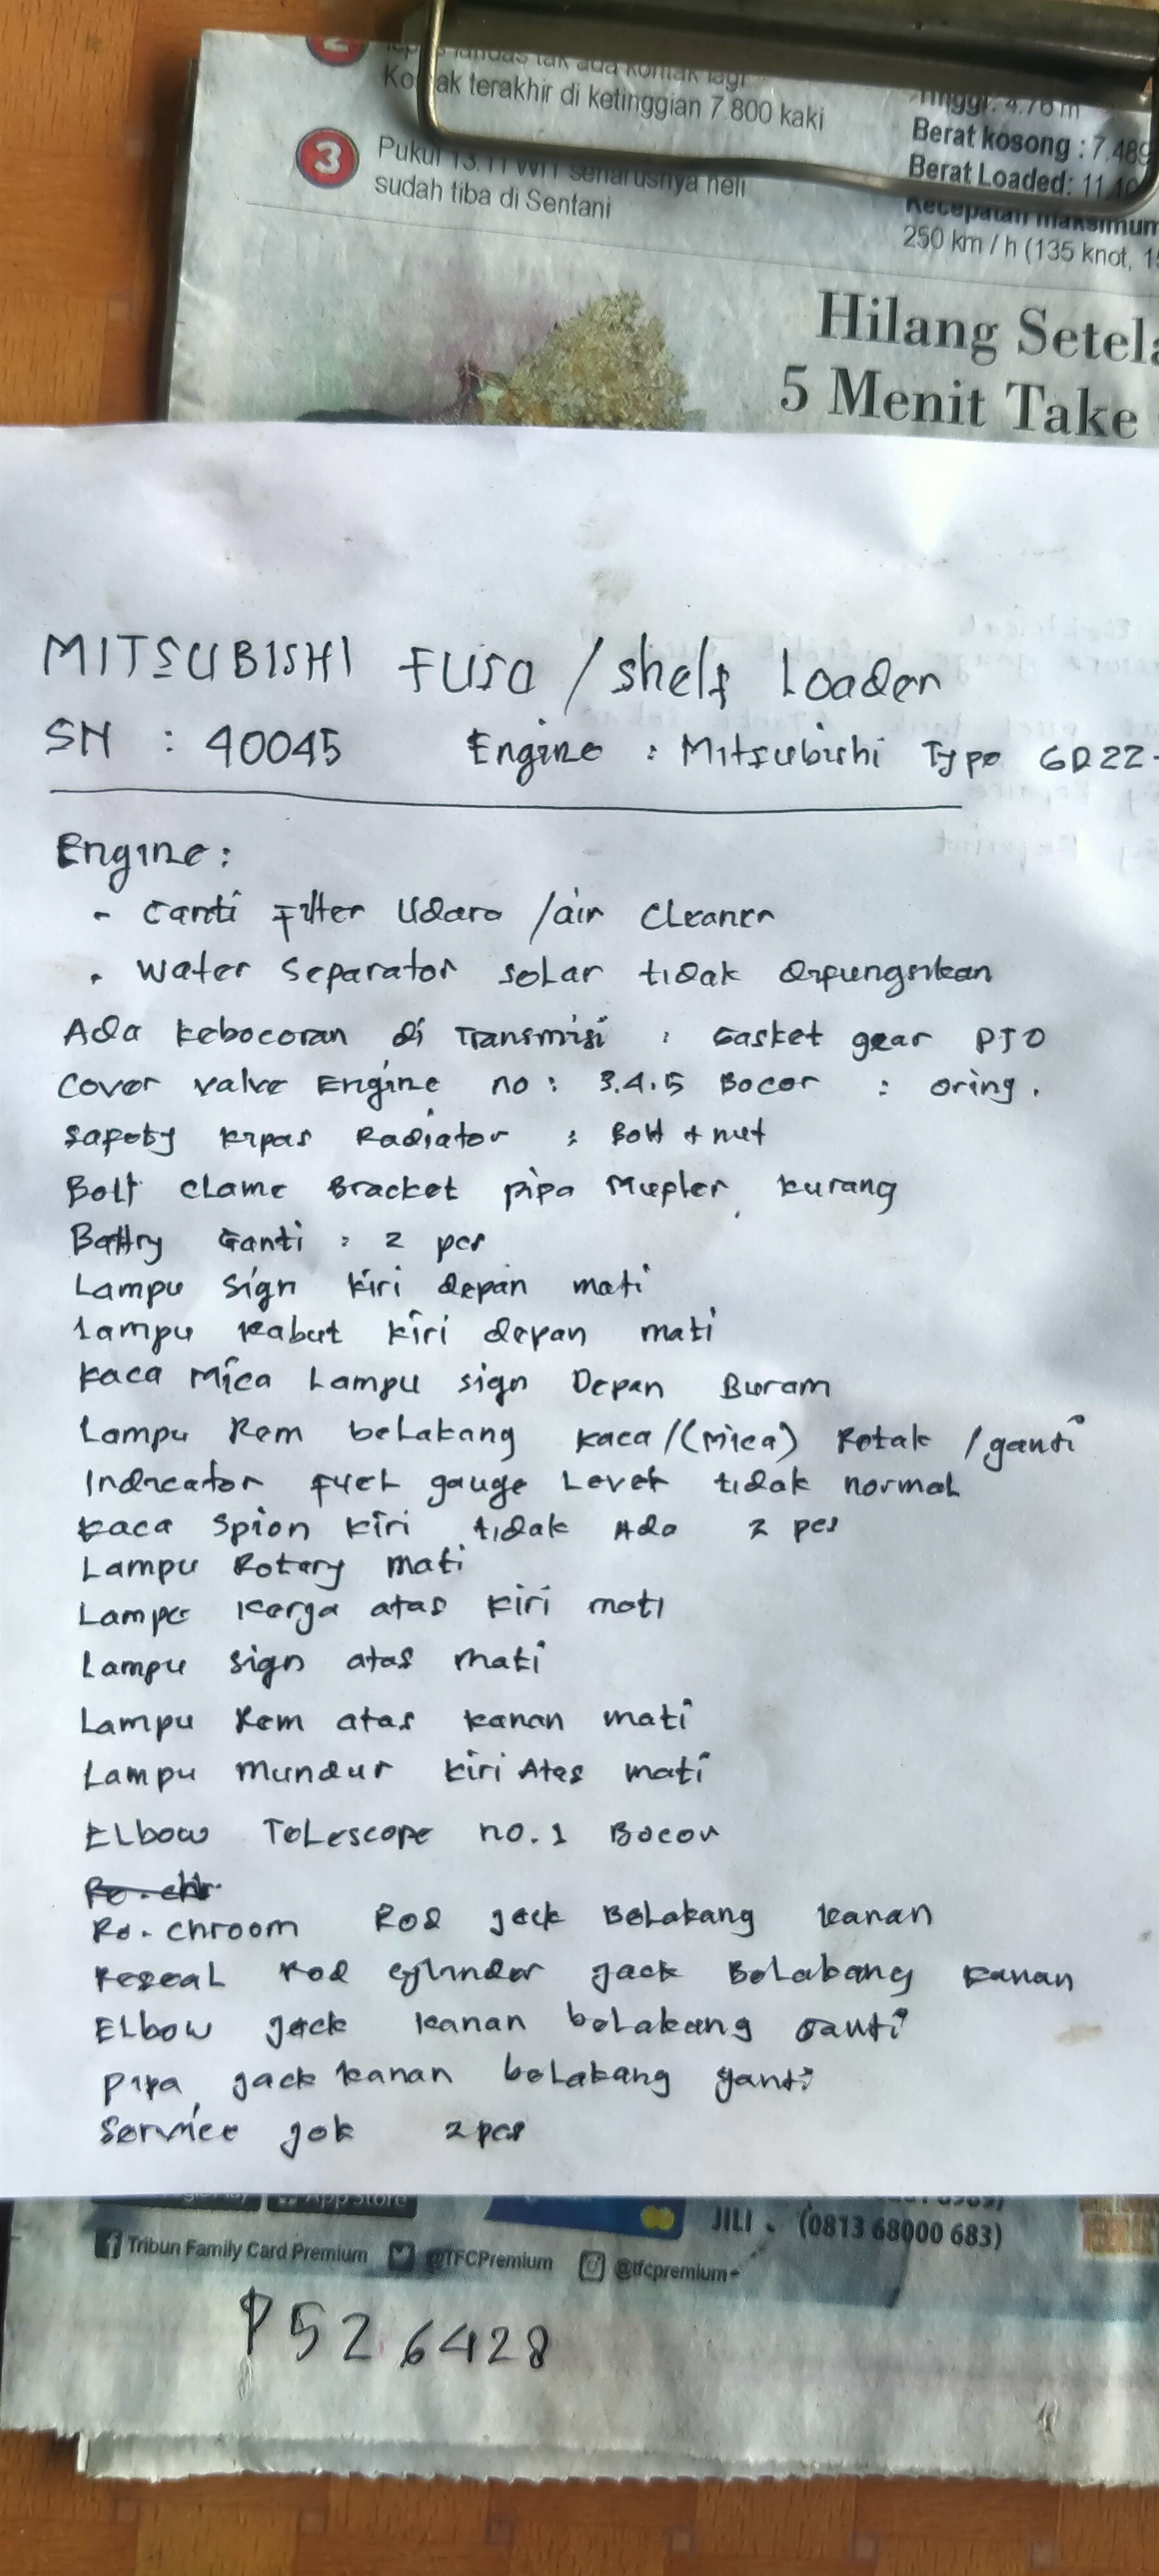 2
lepas landas tak ada kontak lagi
Kontak terakhir di ketinggian 7.800 kaki
3
Pukul 13.11 WIT seharusnya heli
sudah tiba di Sentani
Tinggi: 4.76 m
Berat kosong : 7.489
Berat Loaded: 11.10
Kecepatan maksimum
250 km / h (135 knot, 15
Hilang Setela
5 Menit Take
MITSUBISHI FUSO / shelf Loader
SN : 40045 Engine : Mitsubishi Type 6D22-
Engine :
- Ganti Filter Udara / air Cleaner
- Water Separator solar tidak dipungsikan
Ada kebocoran di Transmisi : Gasket gear PTO
Cover valve Engine no : 3.4.5 Bocor : oring .
Safety kipas Radiator : Bolt + nut
Bolt Clame Bracket pipa Mupler kurang
Battry Ganti : 2 pcs
Lampu sign kiri depan mati
Lampu kabut kiri depan mati
Kaca Mica Lampu sign Depan Buram
Lampu Rem belakang kaca / (mica) Retak / ganti
Indicator fuel gauge Level tidak normal
Kaca Spion Kiri tidak Ada 2 pcs
Lampu Rotary mati
Lampu Kerja atas kiri mati
Lampu sign atas mati
Lampu Rem atas kanan mati
Lampu Mundur kiri Atas mati
Elbow Telescope no. 1 Bocor
Re. chr
Re. chroom Rod jack Belakang kanan
Reseal Rod cylinder jack Belakang kanan
Elbow jack kanan belakang Ganti
Pipa jack kanan belakang ganti
Service jok 2 pcs
App Store
JILI . (0813 68000 683)
Tribun Family Card Premium @TFCPremium @tfcpremium
P526428